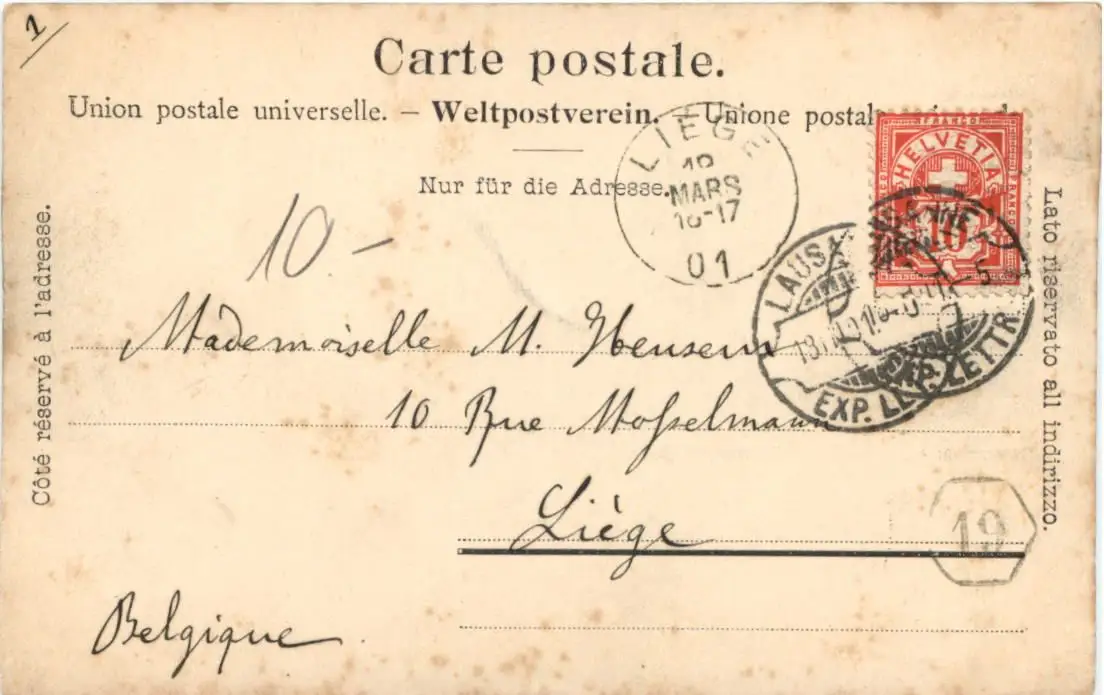 1
Carte postale.
Union postale universelle. — Weltpostverein. — Unione postale
Nur für die Adresse.
Côté réservé à l'adresse.
Lato riservato all indirizzo.
FRANCO
HELVETIA
FRANCO
10
LIEGE
MARS
16-17
01
LAUSANNE
EXP. LETTR.
10.-
Mademoiselle M. Heusens
10 Rue Mosselmann
Liége
Belgique
19